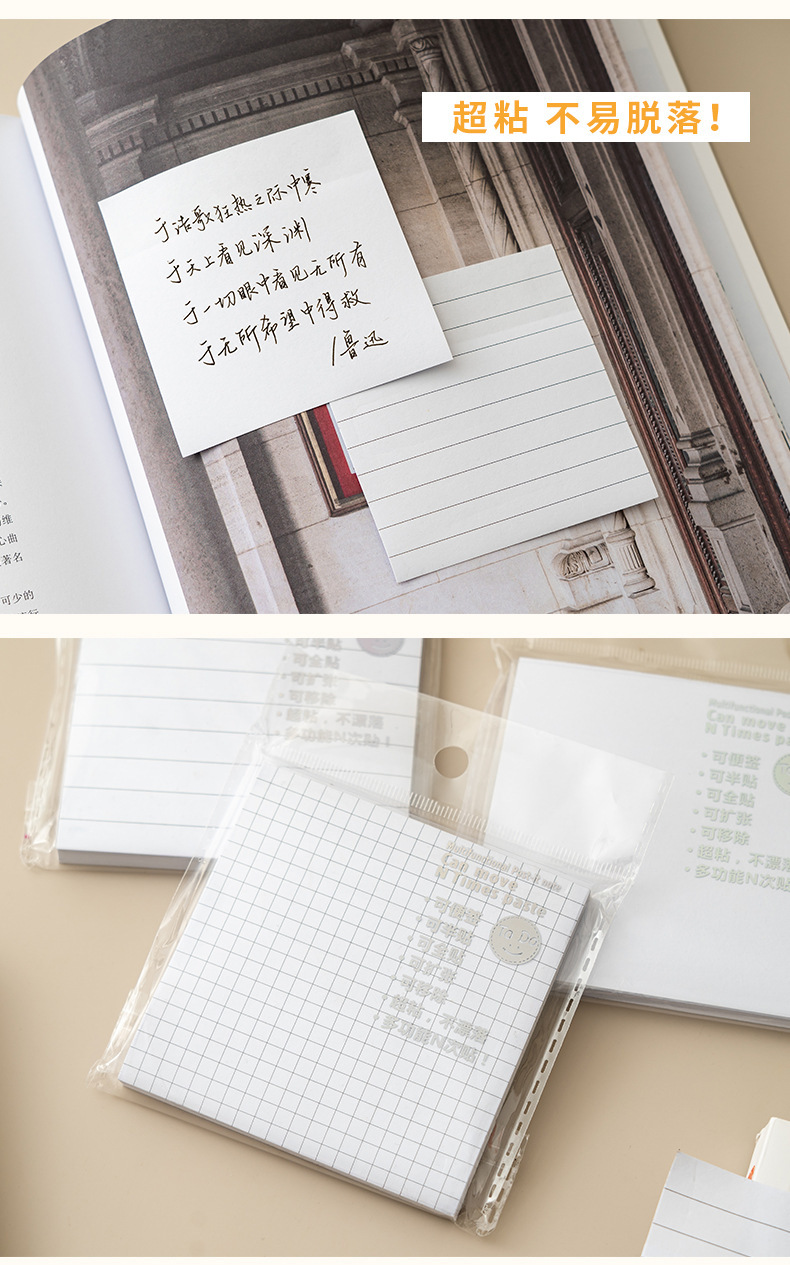 超粘 不易脱落！
于浩歌狂热之际中寒
于天上看见深渊
于一切眼中看见无所有
于无所希望中得救
/鲁迅
维
心曲
著名
可少的
可半贴
· 可全贴
· 可扩张
· 可移除
· 超粘，不漂落
· 多功能N次贴！
Multifunctional Pos
Can move
N Times pa
· 可便签
· 可半贴
· 可全贴
· 可扩张
· 可移除
· 超粘，不漂落
· 多功能N次贴
Multifunctional Post-it note
Can move
N Times paste
· 可便签
· 可半贴
· 可全贴
· 可扩张
· 可移除
· 超粘，不漂落
· 多功能N次贴！